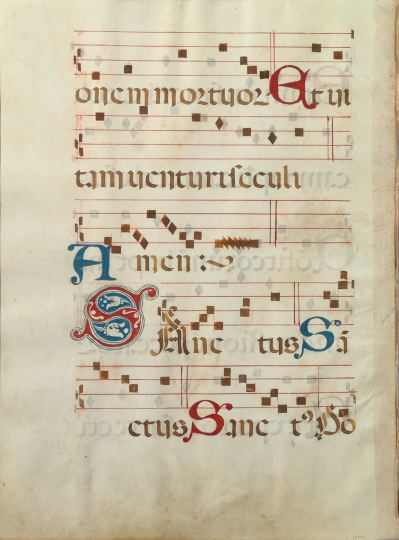 onem mortuor Et ui
tam uenturi seculi
Amen:
SAnc tus Sā
ctus Sanc t⁹ Do